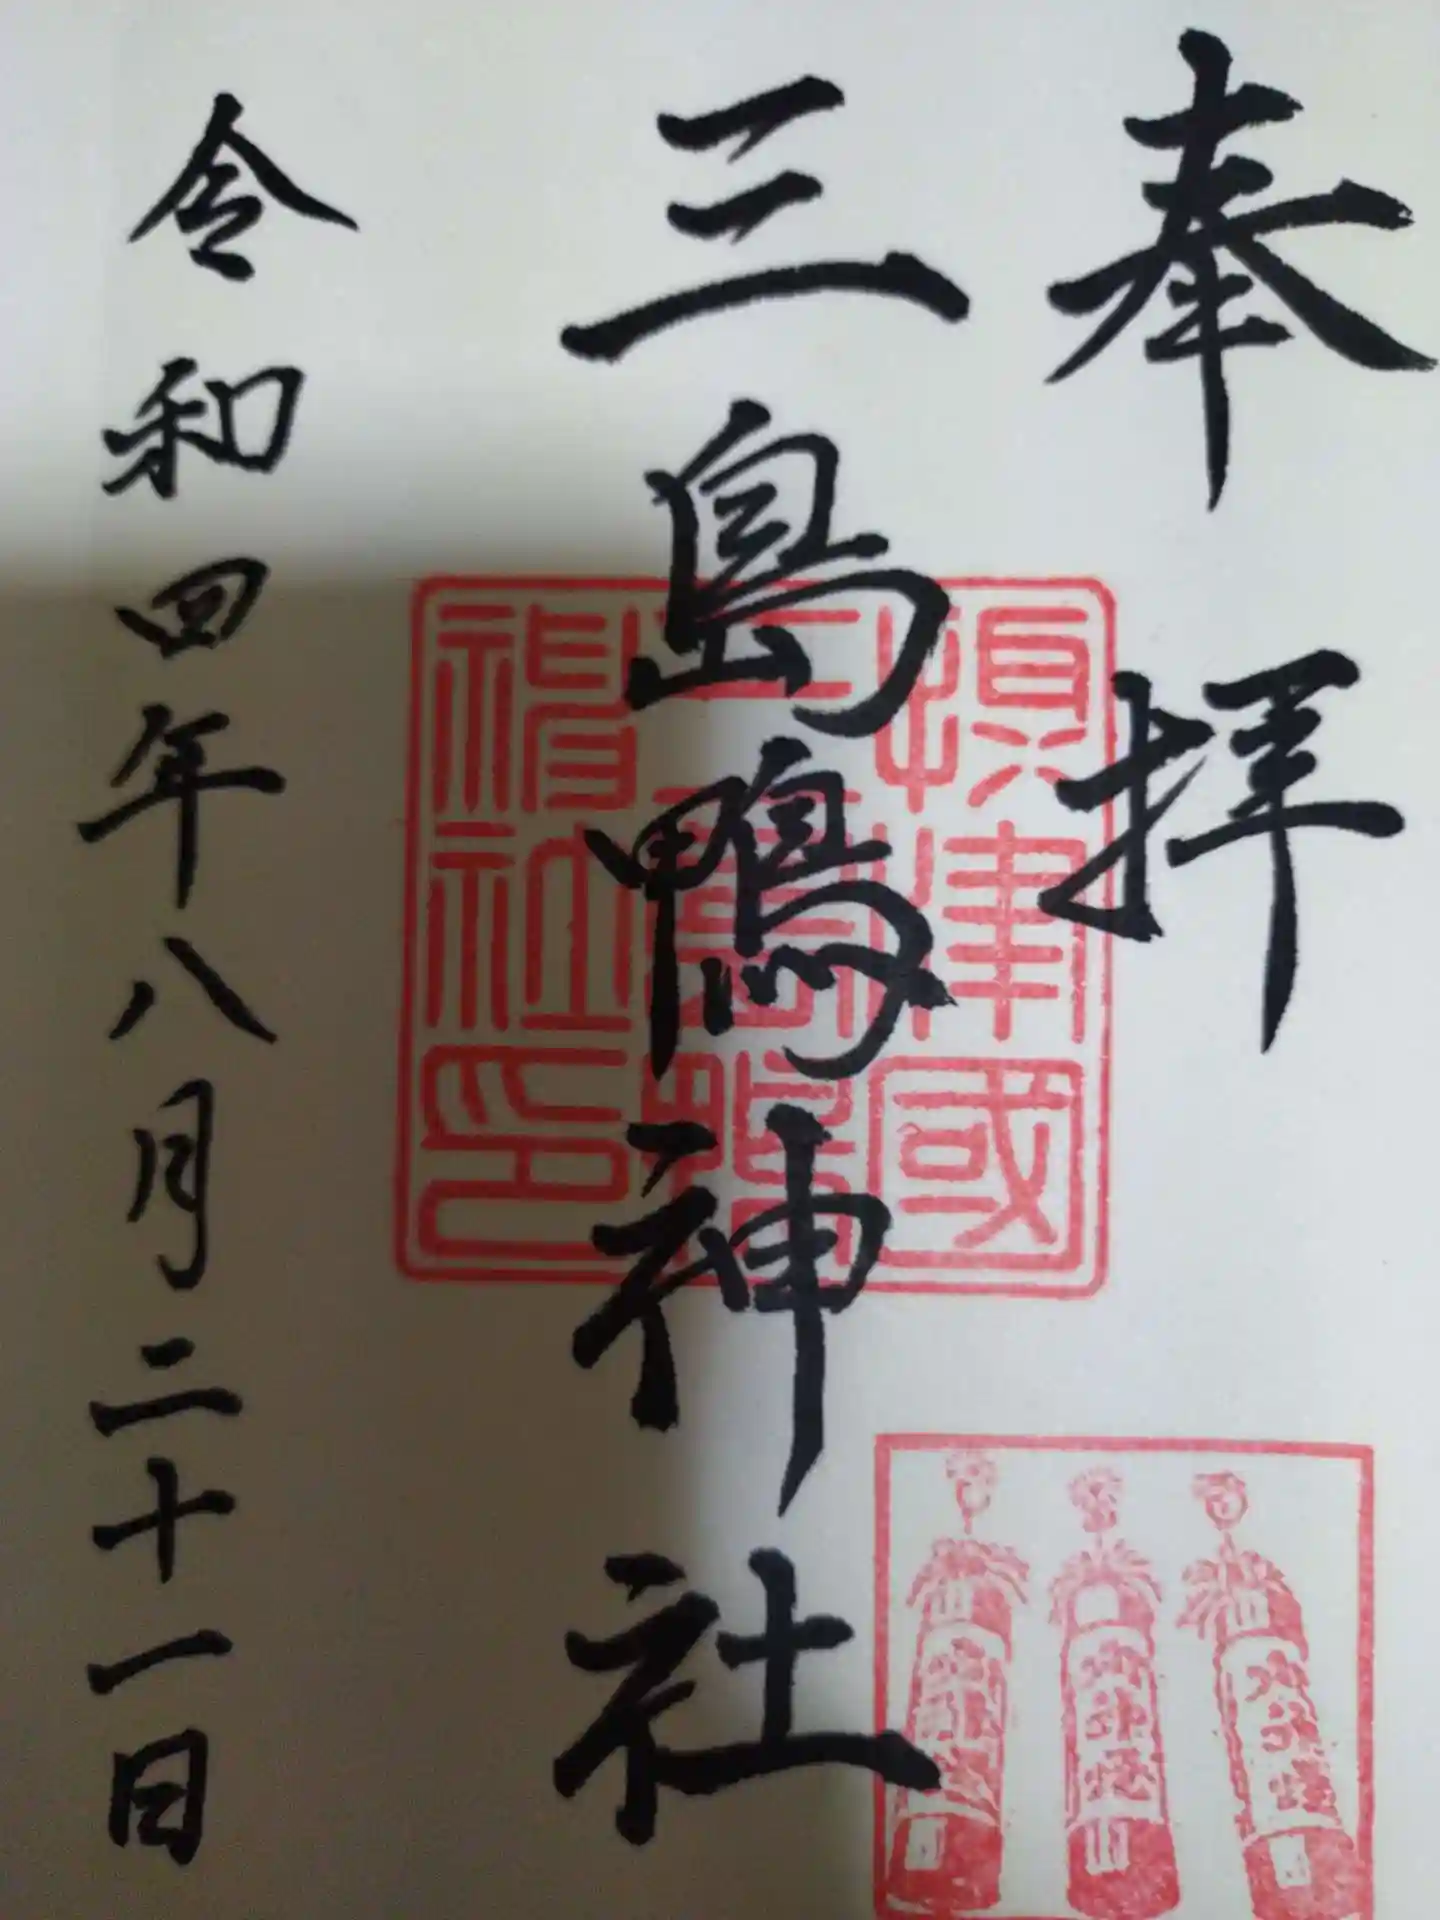 奉拝
三島鴨神社
令和四年八月二十一日
摂津國
三島鴨
神社印